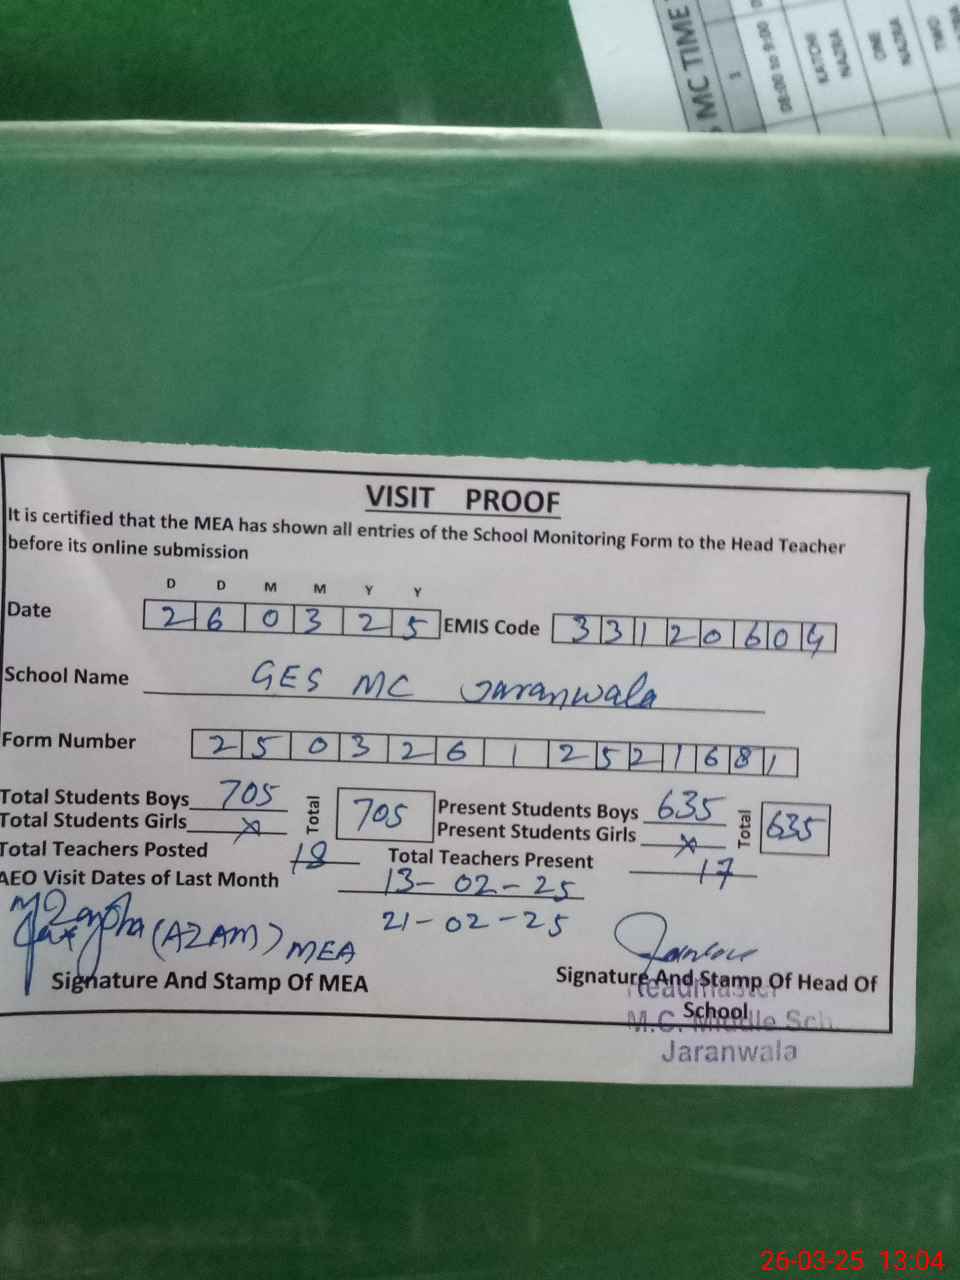 MC TIME
1
08:00 to 9:00
NAZRA
ONE
NAZRA
TWO
VISIT PROOF
It is certified that the MEA has shown all entries of the School Monitoring Form to the Head Teacher
before its online submission
D D M M Y Y
Date 2 6 0 3 2 5 EMIS Code 3 3 1 2 0 6 0 4
School Name GES MC Jaranwala
Form Number 2 5 0 3 2 6 1 2 5 2 1 6 8 1
Total Students Boys 705 Total 705 Present Students Boys 635 Total 635
Total Students Girls x Present Students Girls x
Total Teachers Posted 18 Total Teachers Present 17
AEO Visit Dates of Last Month 13-02-25
21-02-25
(AZAM) MEA
Signature And Stamp Of MEA Signature And Stamp Of Head Of
School
Headmaster
M.C. Middle Sch.
Jaranwala
26-03-25 13:04